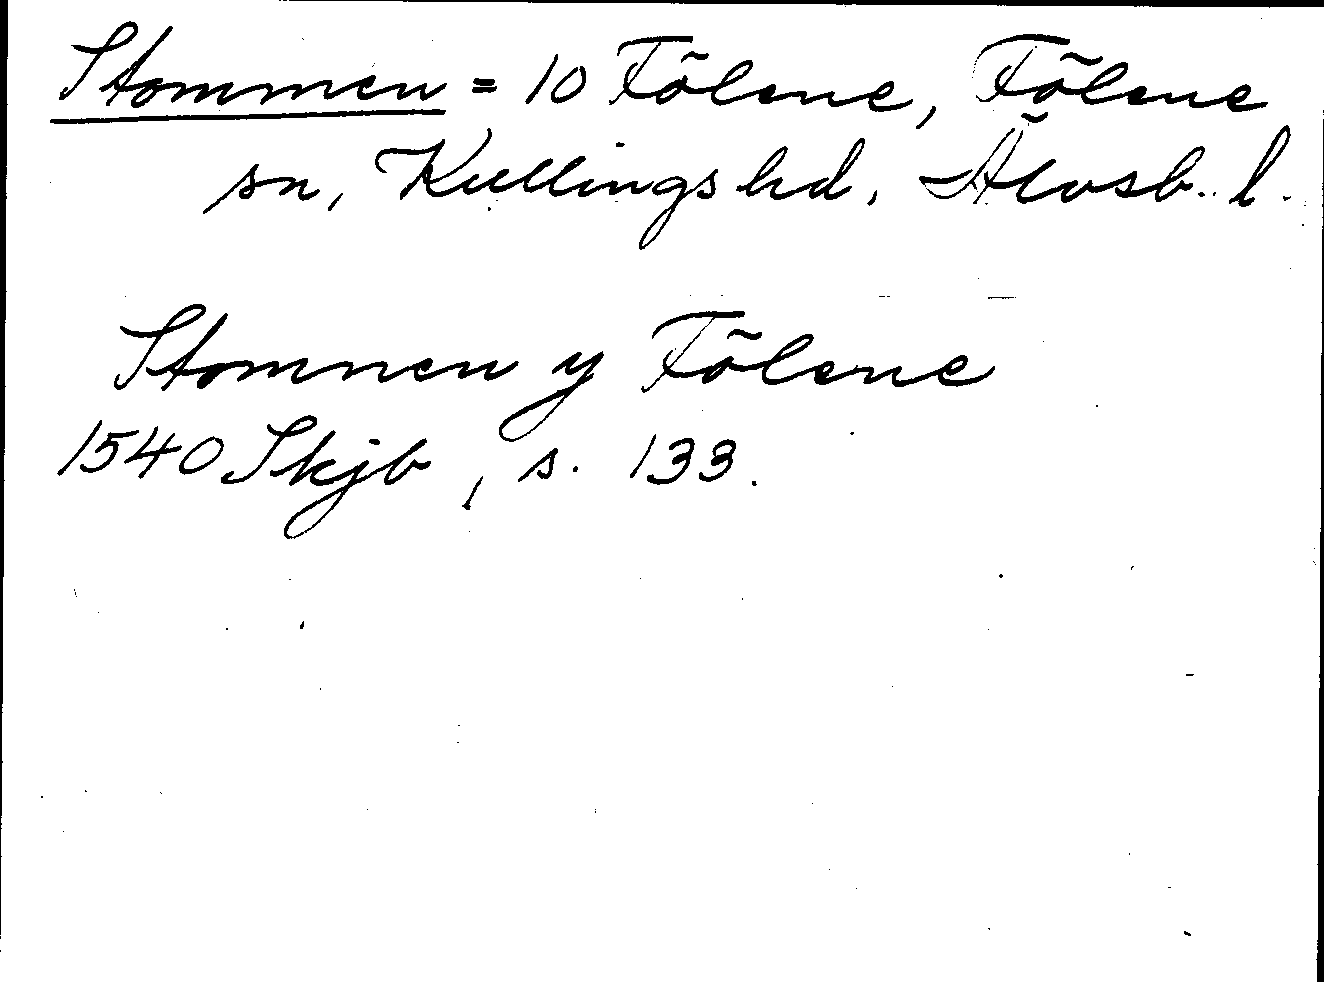 Stommen = 10 Fölene, Fölene
sn, Kullings hd, Älvsb. l.
Stomnen y Fölene
1540 Skjb, s. 133.